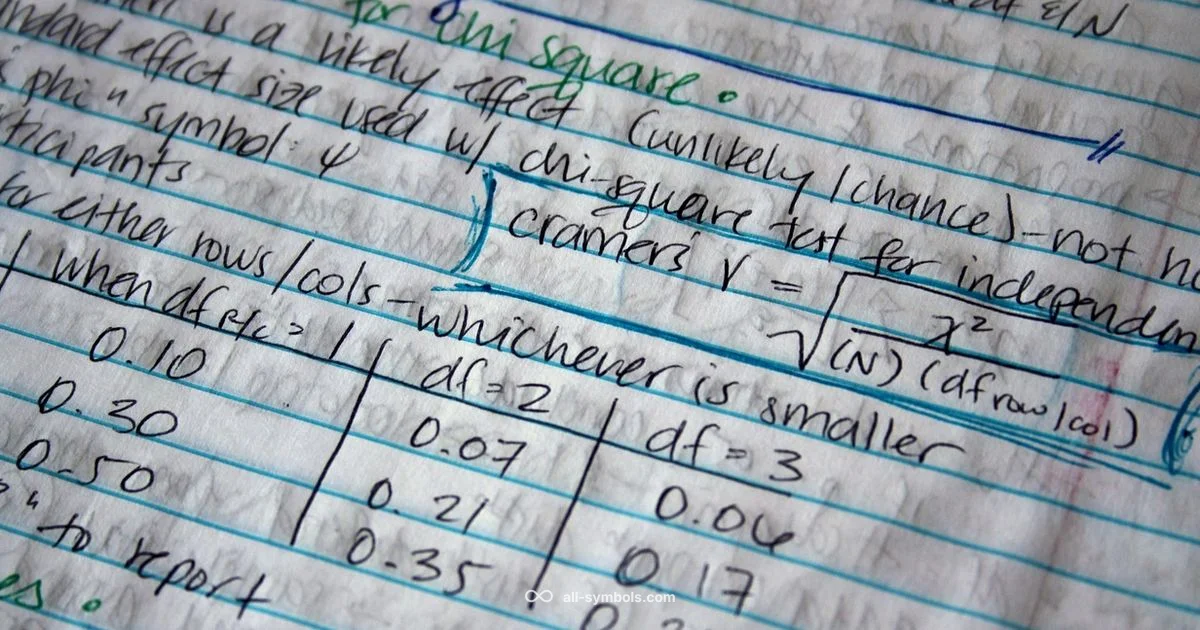 for chi square.
is a likely effect (unlikely/chance)-not
effect size used w/ chi-square test for independen
phi" symbol: φ cramer's V = √ χ² / (N) (df row/col)
ticipants
for either rows/cols - whichever is smaller
when df R/C = 1 df = 2 df = 3
0.10 0.07 0.06
0.30 0.21 0.17
0.50 0.35
to report
all-symbols.com